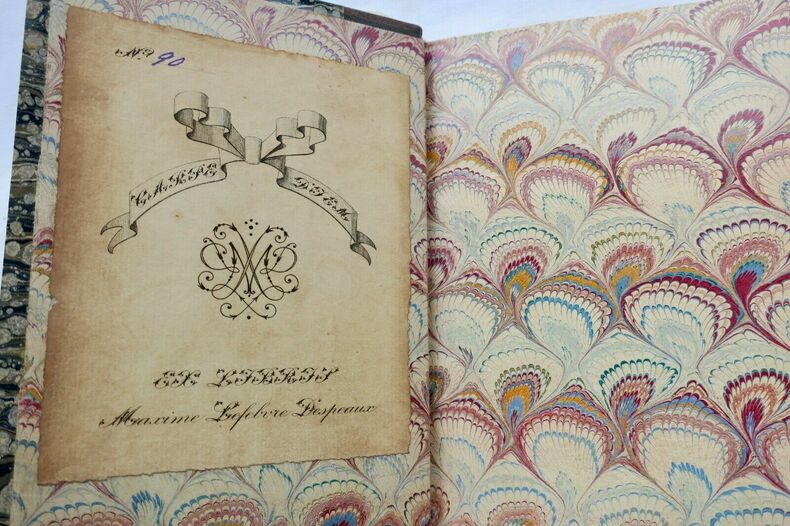 No 90
CARPE DIEM
EX LIBRIS
Maxime Lefebvre Despeaux